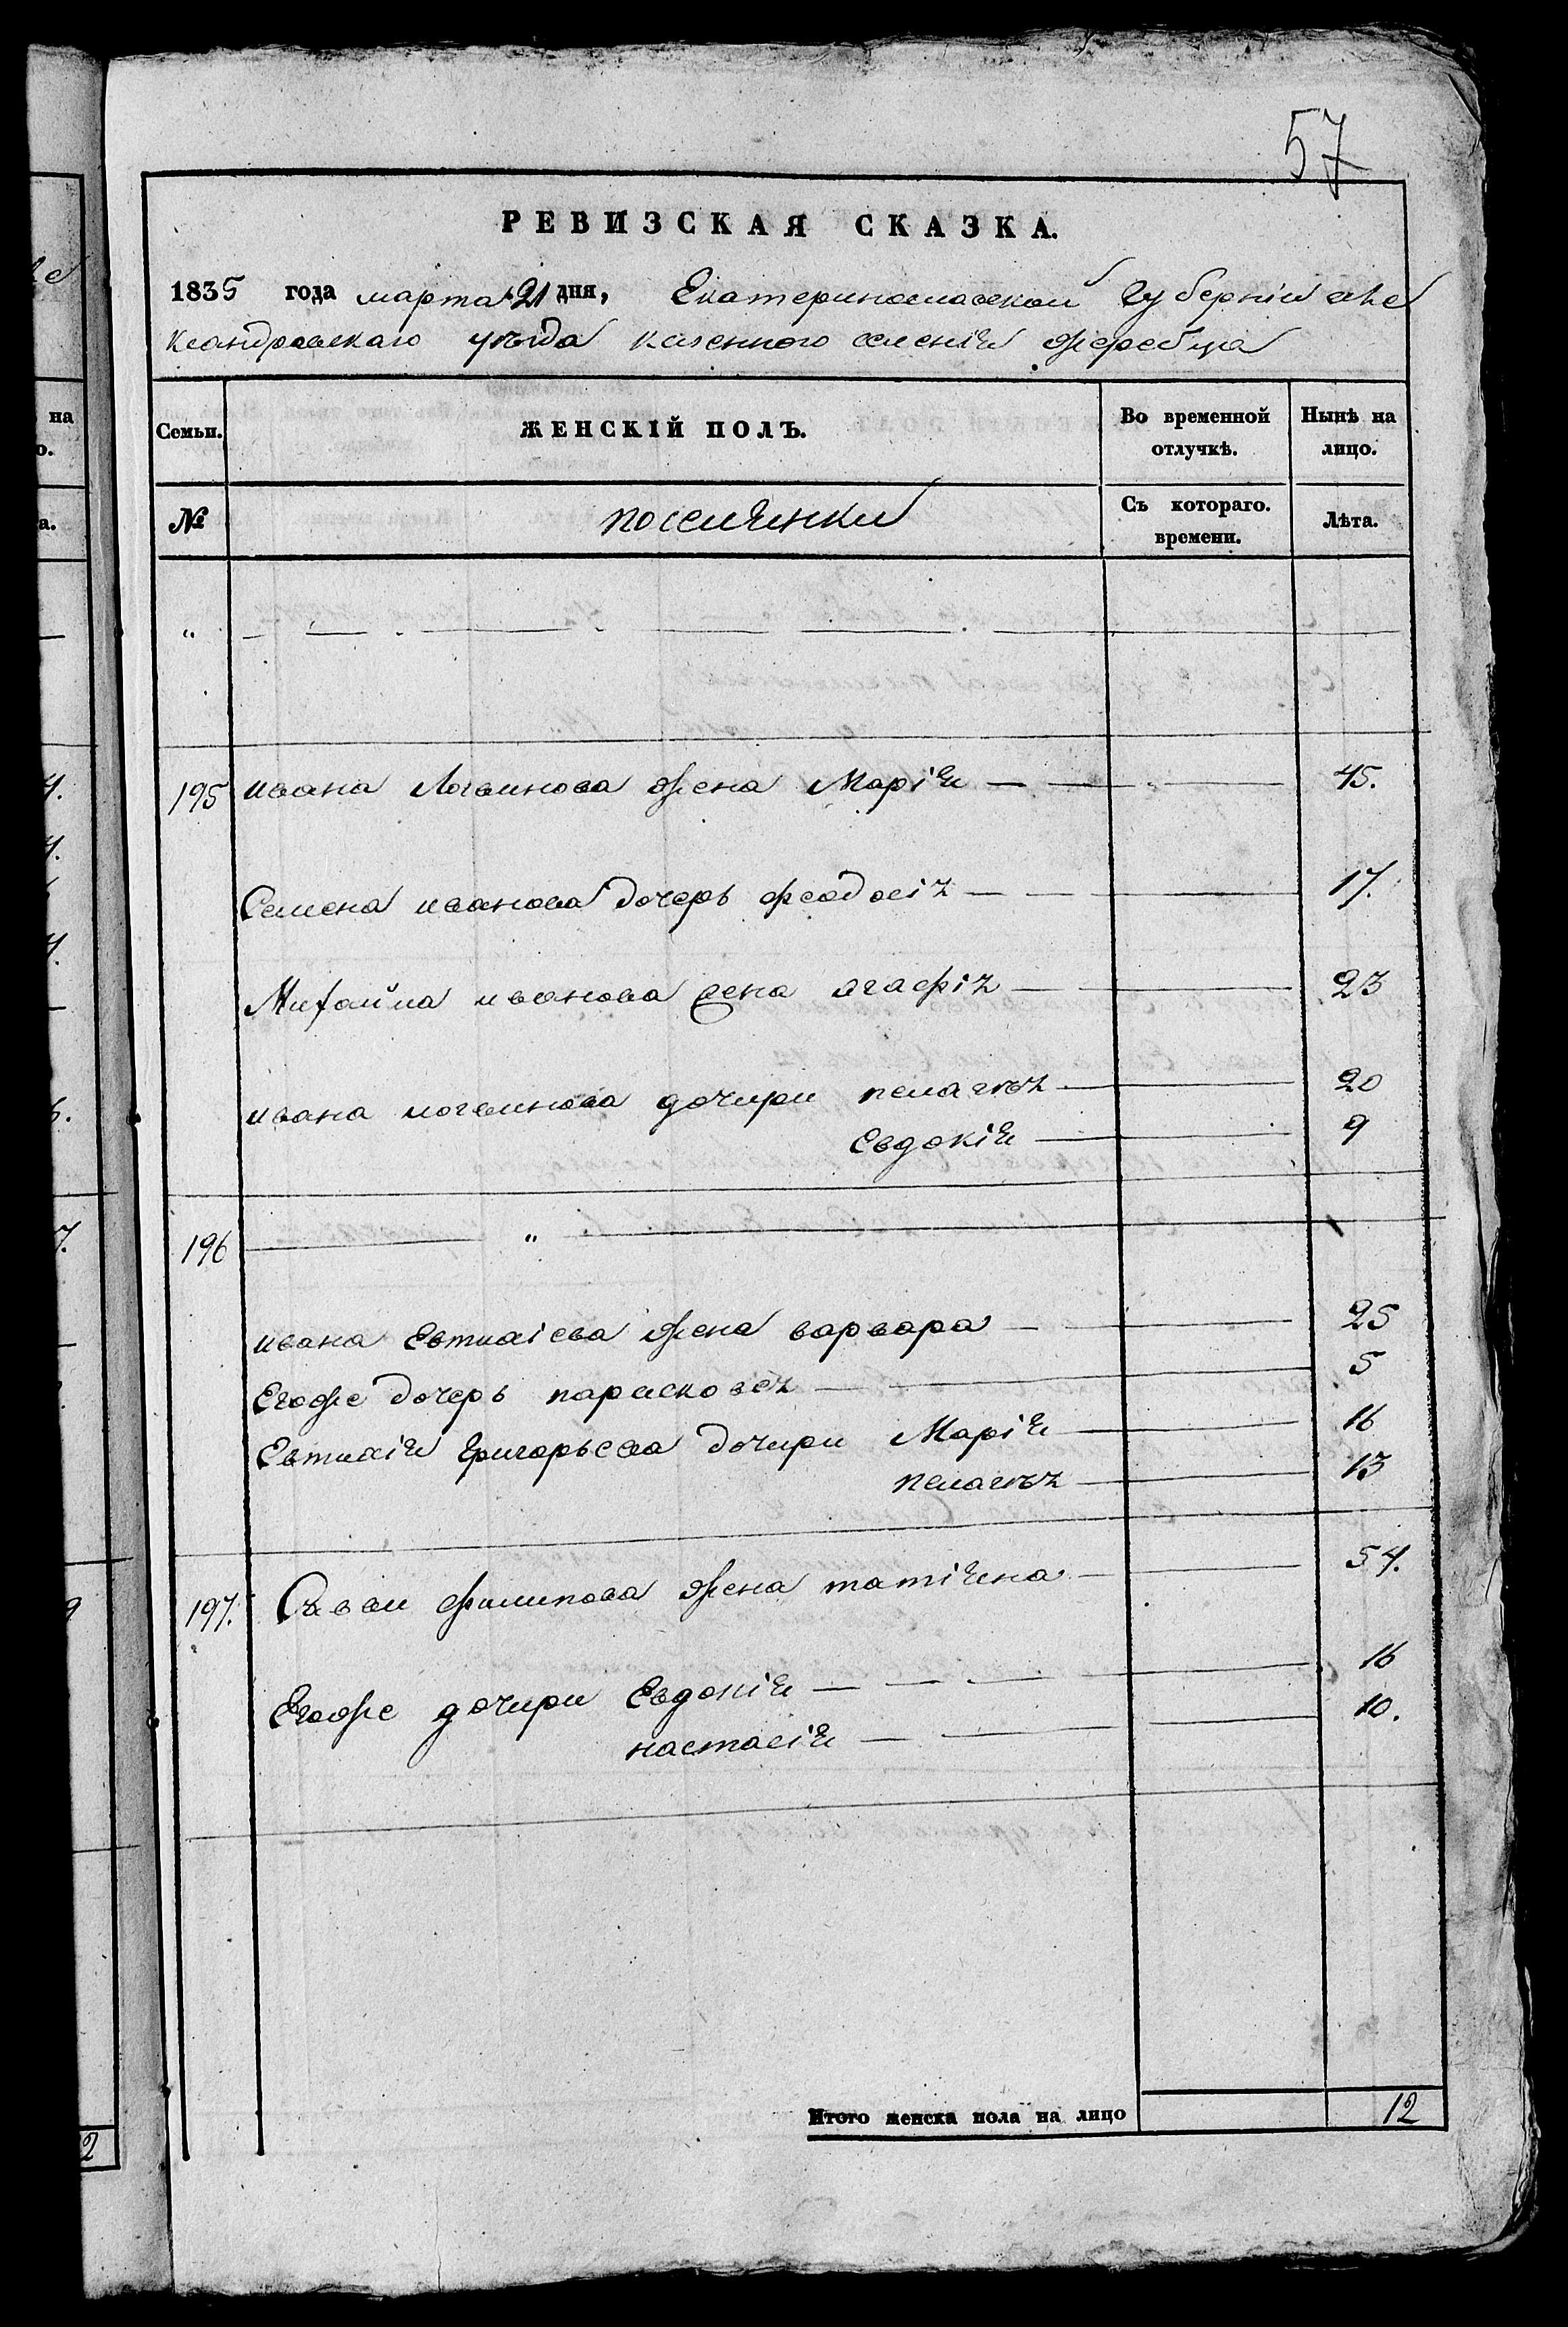 57
РЕВИЗСКАЯ СКАЗКА.
1835 года марта 21 дня, Екатеринославской Губерніи але
ксандровскаго уѣзда казенного селенія жеребца
Семьи. ЖЕНСКІЙ ПОЛЪ. Во временной отлучкѣ. Нынѣ на лицо.
№ поселянки Съ котораго. времени. Лѣта.
195 ивана Логвинова жена Марія 45.
Семена иванова дочерь феодосія 17.
Михайла иванова жена агафія 23
ивана логвинова дочири пелагѣя 20
Евдокія 9
196
ивана Евтихіева жена варвара 25
Егоже дочерь парасковея 5
Евтихія Григорьева дочири Марія 16
пелагѣя 13
197. Саввы филипова жена татіяна 54.
Егоже дочири Евдокія 16
настасія 10.
Итого женска пола на лицо 12
на
о.
а.